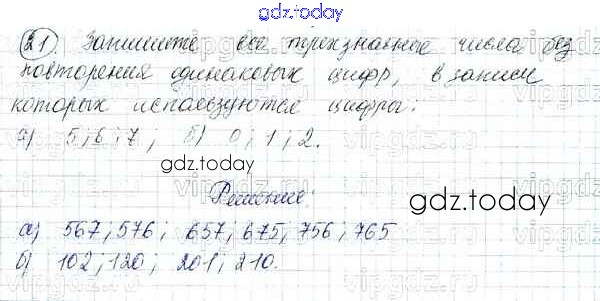 gdz.today
21 Запишите все трехзначные числа без
повторения одинаковых цифр, в записи
которых используются цифры:
а) 5; 6; 7; б) 0; 1; 2.
gdz.today
Решение:
gdz.today
а) 567; 576; 657; 675; 756; 765
б) 102; 120; 201; 210.